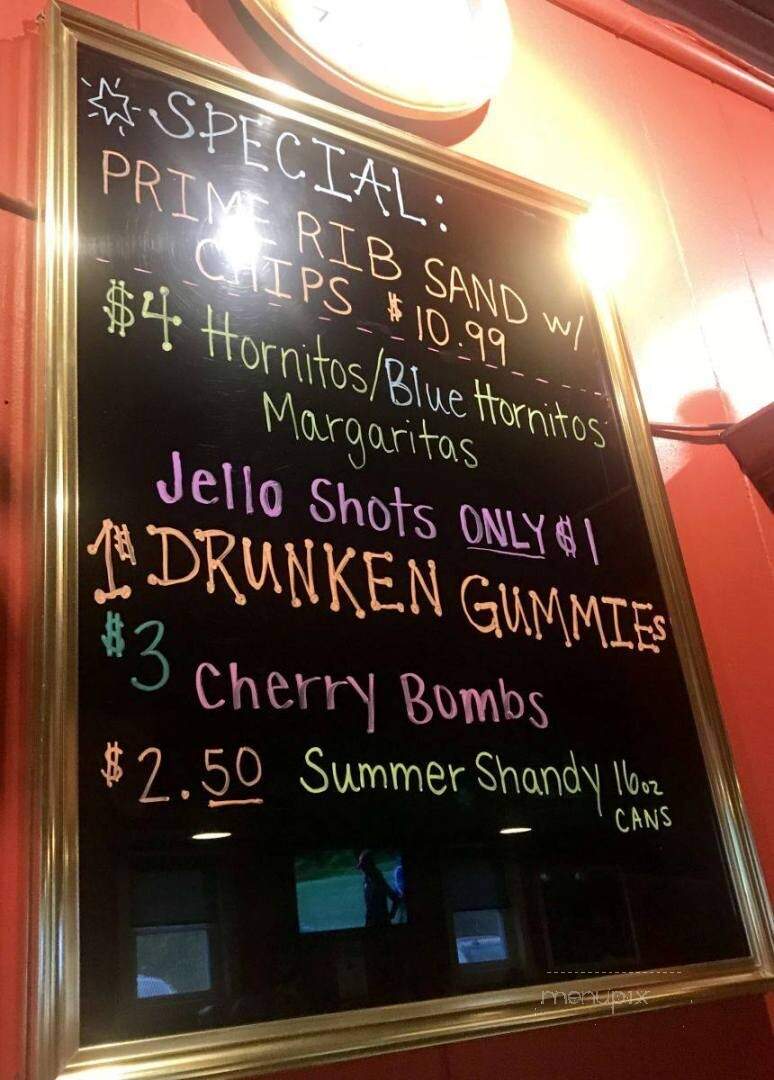 SPECIAL:
PRIME RIB SAND w/
CHIPS $10.99
$4 Hornitos/Blue Hornitos
Margaritas
Jello Shots ONLY $1
1$ DRUNKEN GUMMIES
$3 Cherry Bombs
$2.50 Summer Shandy 16oz
CANS
menupix